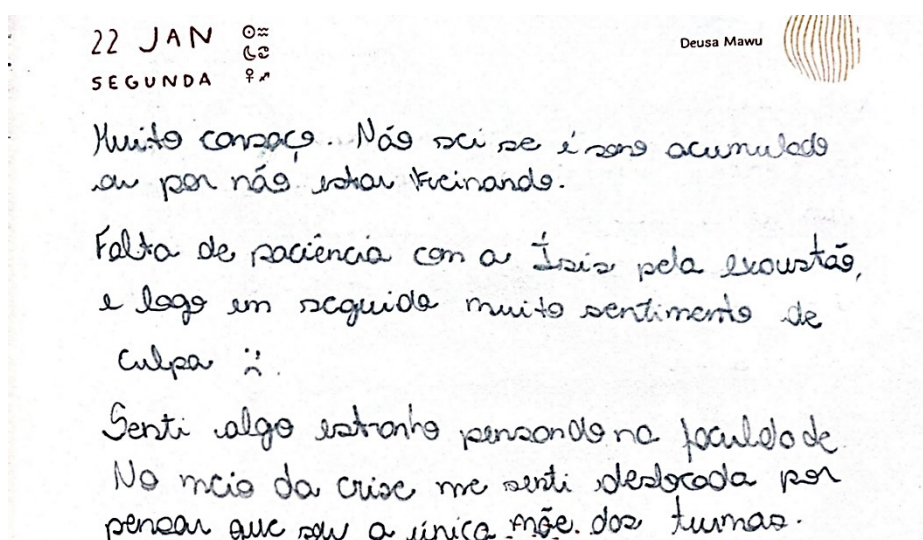 22 JAN ☉♒
☾♋
SEGUNDA ♀♐
Deusa Mawu
Muito cansaço. Não sei se é sono acumulado
ou por não estar treinando.
Falta de paciência com a Ísis pela exaustão,
e logo em seguida muito sentimento de
culpa :(.
Senti algo estranho pensando na faculdade.
No meio da crise me senti deslocada por
pensar que sou a única mãe das turmas.